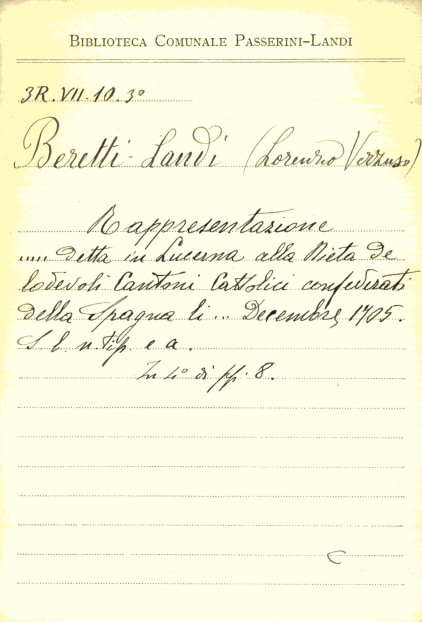 BIBLIOTECA COMUNALE PASSERINI-LANDI
3R.VII.10.3º
Beretti-Landi (Lorenzo Verzuso)
Rappresentazione
..... detta in Lucerna alla Dieta de
lodevoli Cantoni Cattolici confederati
della Spagna li ... Decembre, 1705.
S l n. tip. e a.
In 4º di pp. 8.